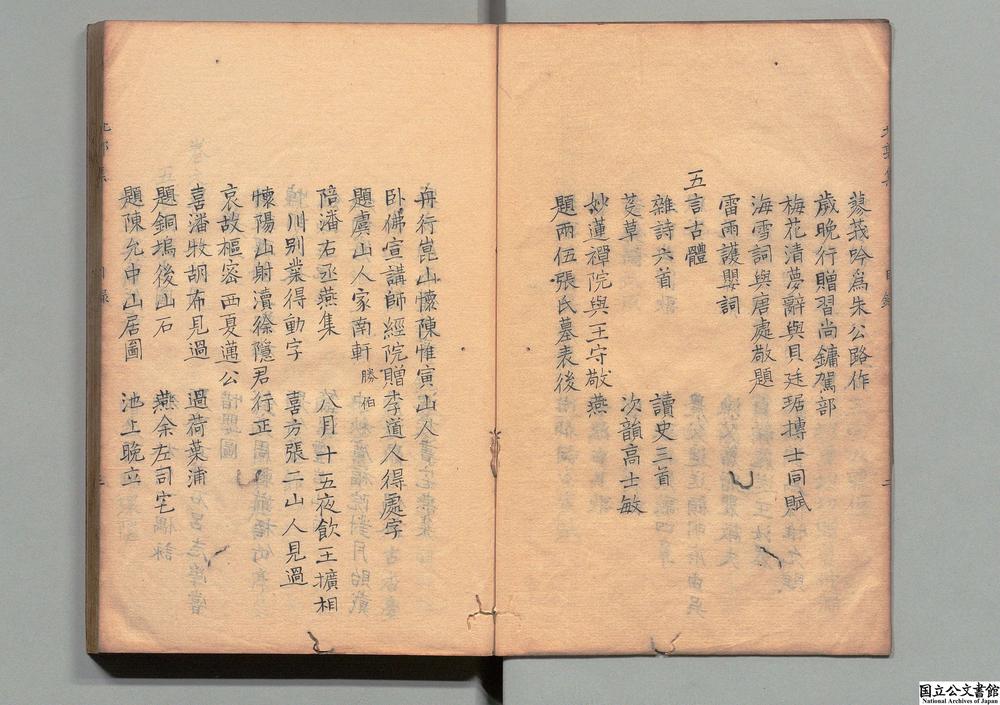 蓼莪吟爲朱公路作
歲晚行贈習尚鏞駕部
梅花清夢辭與貝廷琚摶士同賦
海雪詞與唐處敬題
雷雨護嬰詞
五言古體
雜詩六首 讀史三首
茭草 次韻高士敏
妙蓮禪院與王守敬燕
題兩伍張氏墓表後
冉行崑山懷陳惟寅山人
卧佛宣講師經院贈李道人得處字
題虞山人家南軒 勝伯
陪潘右丞燕集 八月十五夜飲王擴相
川别業得動字 喜方張二山人見過
懷陽山射瀆徐隱君行正
哀故樞密西夏邁公
喜潘牧胡布見過 過荷葉浦
題銅塢後山石 燕余左司宅
題陳允中山居圖 池上晚立
国立公文書館
National Archives of Japan